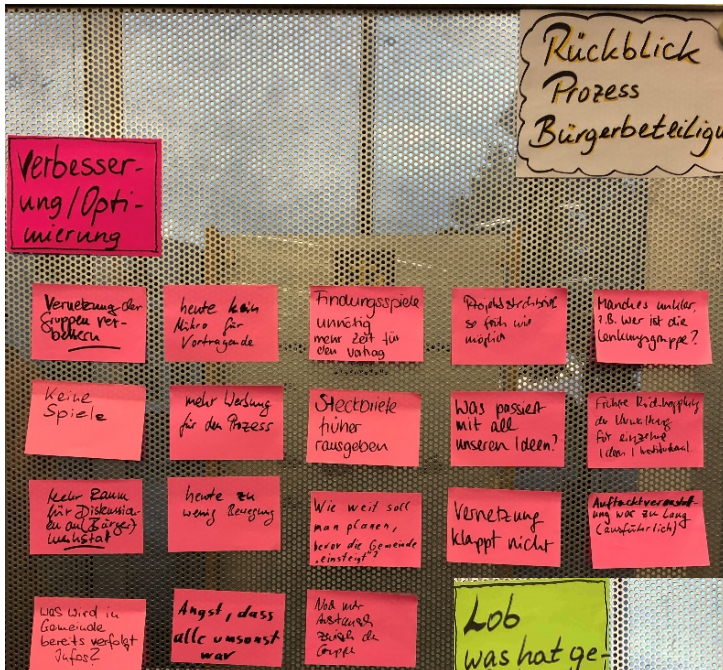 Rückblick
Prozess
Bürgerbeteiligu
Verbesser-
ung/Opti-
mierung
Vernetzung der
Gruppen ver-
bessern
heute kein
Mikro für
Vortragende
Findungsspiele
unnötig
mehr Zeit für
den Vortrag
so früh wie
möglich
Manches unklar,
z.B. wer ist die
Lenkungsgruppe?
Keine
Spiele
mehr Werbung
für den Prozess
Steckbriefe
früher
rausgeben
Was passiert
mit all
unseren Ideen?
Frühere Rückkopplung
der Verwaltung
für einzelne
Ideen
Mehr Raum
für Diskussion-
en auf (Bürger)
heute zu
wenig Bewegung
Wie weit soll
man planen,
bevor die Gemeinde
„einsteigt"?
Vernetzung
klappt nicht
Auftaktveranstalt-
ung war zu lang
(ausführlich)
was wird in
Gemeinde
bereits verfolgt
Infos?
Angst, dass
alles umsonst
war
Noch mehr
Austausch
zwischen den
Gruppen
Lob
was hat ge-